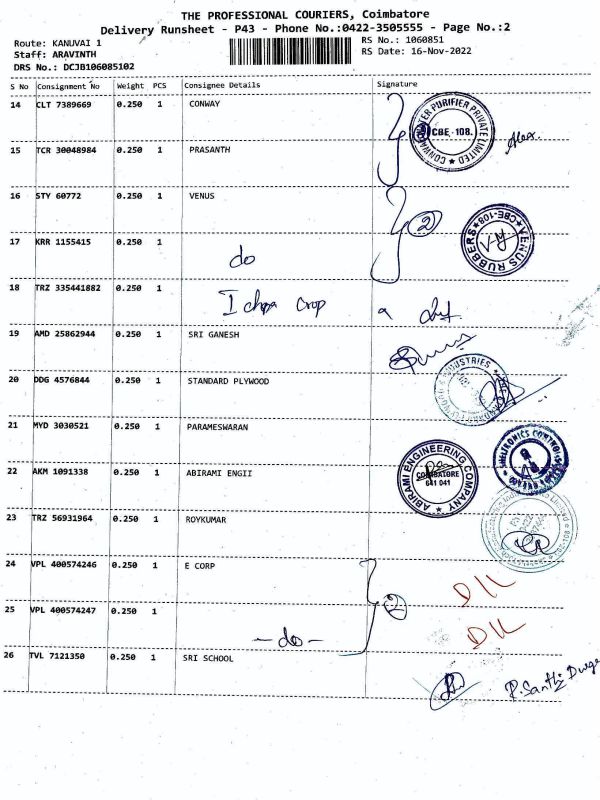 THE PROFESSIONAL COURIERS, Coimbatore
Delivery Runsheet - P43 - Phone No.:0422-3505555 - Page No.:2
Route: KANUVAI 1
Staff: ARAVINTH
DRS No.: DCJB106085102
RS No.: 1060851
RS Date: 16-Nov-2022
S No Consignment No Weight PCS Consignee Details Signature
14 CLT 7389669 0.250 1 CONWAY
CBE-108. PURIFIER PRIVATE LIMITED
Alex.
15 TCR 30048984 0.250 1 PRASANTH
16 STY 60772 0.250 1 VENUS
2
VENUS RUBBERS CBE-108
17 KRR 1155415 0.250 1 do
18 TRZ 335441882 0.250 1 crop
19 AMD 25862944 0.250 1 SRI GANESH
20 DDG 4576844 0.250 1 STANDARD PLYWOOD
INDUSTRIES
21 MYD 3030521 0.250 1 PARAMESWARAN
22 AKM 1091338 0.250 1 ABIRAMI ENGII
ABIRAMI ENGINEERING COMPANY
COIMBATORE
641 041
23 TRZ 56931964 0.250 1 ROYKUMAR
24 VPL 400574246 0.250 1 E CORP
2
25 VPL 400574247 0.250 1 - do -
26 TVL 7121350 0.250 1 SRI SCHOOL